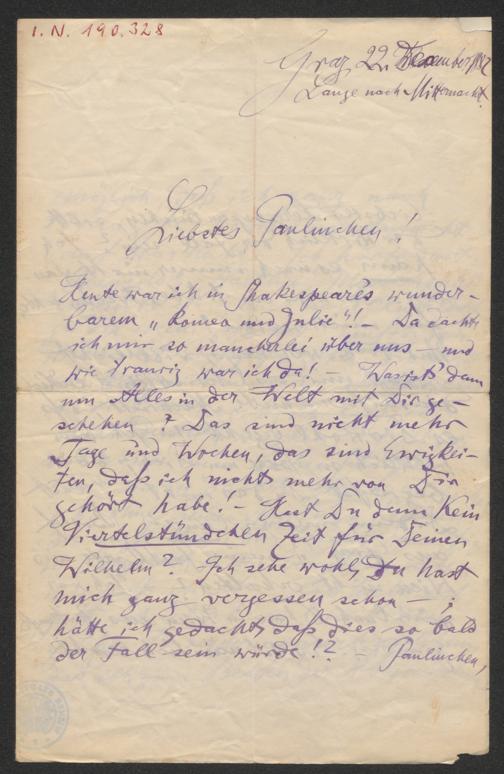 I. N. 190.328
Graz 22. December
Lange nach Mitternacht.
Liebstes Paulinchen!
Heute war ich in Shakespeare's wunder-
barem "Romeo und Julie"! – Da dacht
ich mir so mancherlei über uns – und
wie traurig war ich da! – Was ist's denn
um Alles in der Welt mit Dir ge-
schehen? Das sind nicht mehr
Tage und Wochen, das sind Ewigkei-
ten, daß ich nichts mehr von Dir
gehört habe! – Hast Du denn kein
Viertelstündchen Zeit für Deinen
Wilhelm? Ich sehe wohl, Du hast
mich ganz vergessen schon – ;
hätte ich gedacht, daß dies so bald
der Fall sein würde!? – Paulinchen,